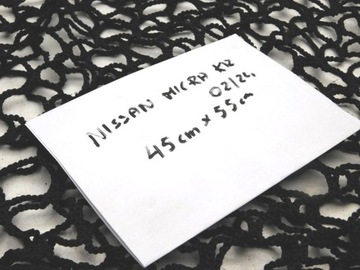 NISSAN MICRA K12
02/24
45cm x 55cm